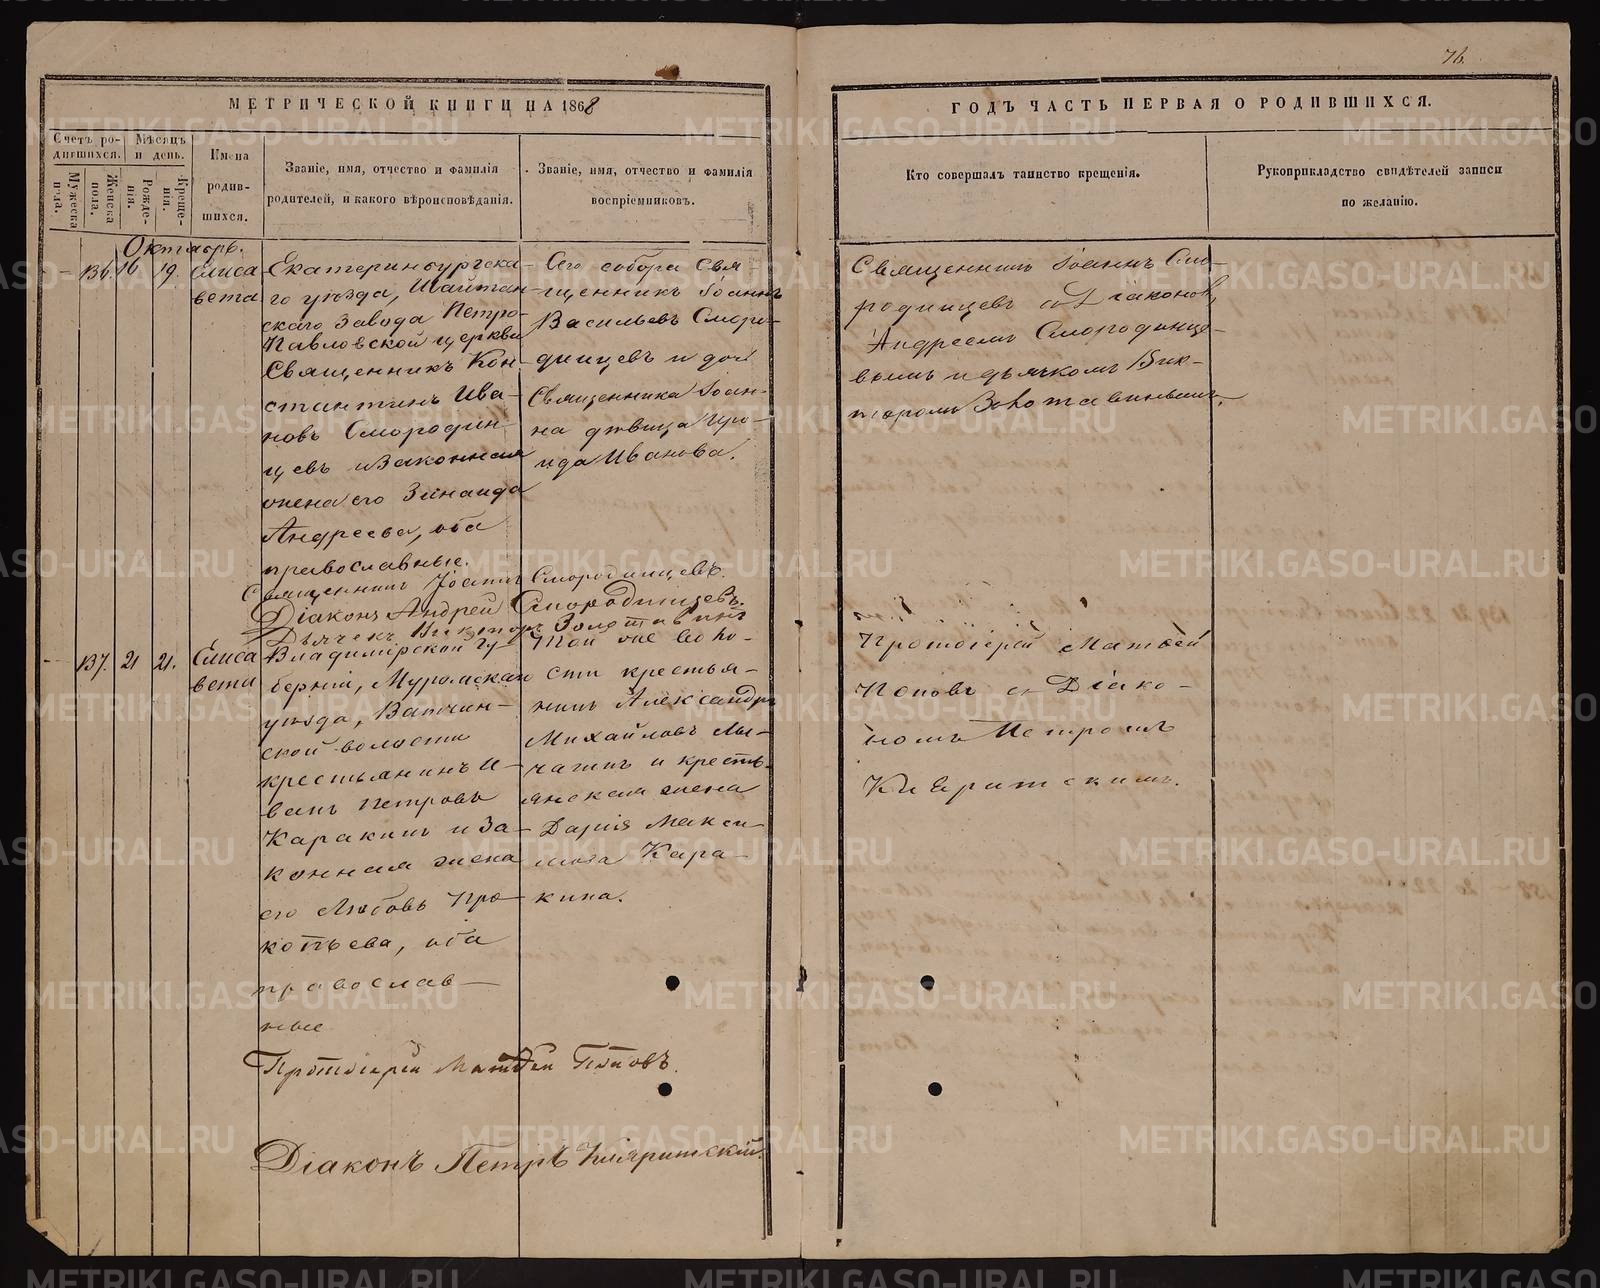 76.
МЕТРИЧЕСКОЙ КНИГИ НА 1868
Счетъ ро-
дившихся.
Мужеска
пола.
Женска
пола.
Мѣсяцъ
и день.
Рожде-
нія.
Креще-
нія.
Имена
родив-
шихся.
Званіе, имя, отчество и фамилія
родителей, и какого вѣроисповѣданія.
Званіе, имя, отчество и фамилія
воспріемниковъ.
ГОДЪ ЧАСТЬ ПЕРВАЯ О РОДИВШИХСЯ.
Кто совершалъ таинство крещенія.
Рукоприкладство свидѣтелей записи
по желанію.
Октябрь.
136 16 19. Елиса
вета
Екатеринбургска-
го уѣзда, Шайтан-
скаго Завода Петро-
Павловской церкви
Священникъ Кон-
стантинъ Ива-
новъ Смородин-
цевъ и законная
жена его Зинаида
Андреева, оба
православные.
Сего собора Свя-
щенникъ Іоаннъ
Васильевъ Сморо-
динцевъ и дочь
Священника Іоан-
на дѣвица Иро-
ида Иванова.
Священникъ Іоаннъ Смо-
родинцевъ съ Діакономъ
Андреемъ Смородинце-
вымъ и дьячкомъ Вик-
торомъ Золотавинымъ.
Священникъ Іоаннъ Смородинцевъ.
Діаконъ Андрей Смородинцевъ.
Дьячекъ Викторъ Золотавинъ
137. 21 21. Елиса
вета
Владимірской гу-
берніи, Муромскаго
уѣзда, Ватчин-
ской волости
крестьянинъ И-
ванъ Петровъ
Каракинъ и за-
конная жена
его Любовь Про-
копьева, оба
православ-
ные
Той же воло-
сти крестья-
нинъ Александръ
Михайловъ Лы-
чагинъ и кресть-
янская жена
Дарія Макси-
мова Кара-
кина.
Протоіерей Матѳей
Поповъ съ Діако-
номъ Петромъ
Протоіерей Матѳей Поповъ.
Діаконъ Петръ
METRIKI.GASO-URAL.RU